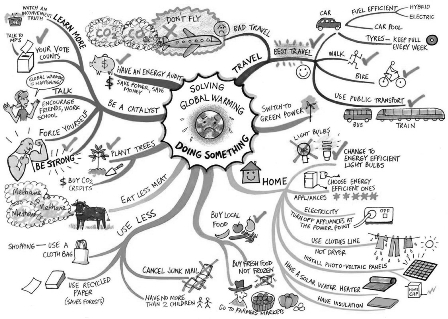 SOLVING
GLOBAL WARMING
DOING SOMETHING
TRAVEL
BAD TRAVEL
DON'T FLY
BEST TRAVEL
CAR
FUEL EFFICIENT
HYBRID
ELECTRIC
CAR POOL
TYRES - KEEP FULL
EVERY WEEK
WALK
BIKE
USE PUBLIC TRANSPORT
BUS
TRAIN
SWITCH TO
GREEN POWER
HOME
LIGHT BULBS
CHANGE TO
ENERGY EFFICIENT
LIGHT BULBS
APPLIANCES
CHOOSE ENERGY
EFFICIENT ONES
ELECTRICITY
TURN OFF APPLIANCES AT
THE POWER POINT
OFF
USE CLOTHES LINE
NOT DRYER
INSTALL PHOTO-VOLTAIC PANELS
HAVE A SOLAR WATER HEATER
HAVE INSULATION
BUY LOCAL
FOOD
BUY FRESH FOOD
NOT FROZEN
GO TO FARMERS MARKETS
USE LESS
CANCEL JUNK MAIL
HAVE NO MORE
THAN 2 CHILDREN
SHOPPING
USE A
CLOTH BAG
USE RECYCLED
PAPER
(SAVES FORESTS)
EAT LESS MEAT
Methane
Methane
Methane
PLANT TREES
$ BUY CO2
CREDITS
BE STRONG
FORCE YOURSELF
BE A CATALYST
TALK
ENCOURAGE
FRIENDS, WORK
SCHOOL
GLOBAL WARMING
IS HAPPENING
YOUR VOTE
COUNTS
TALK TO
MPS
LEARN MORE
WATCH AN
INCONVENIENT
TRUTH
HAVE AN ENERGY AUDIT
SAVE POWER, SAVE
MONEY